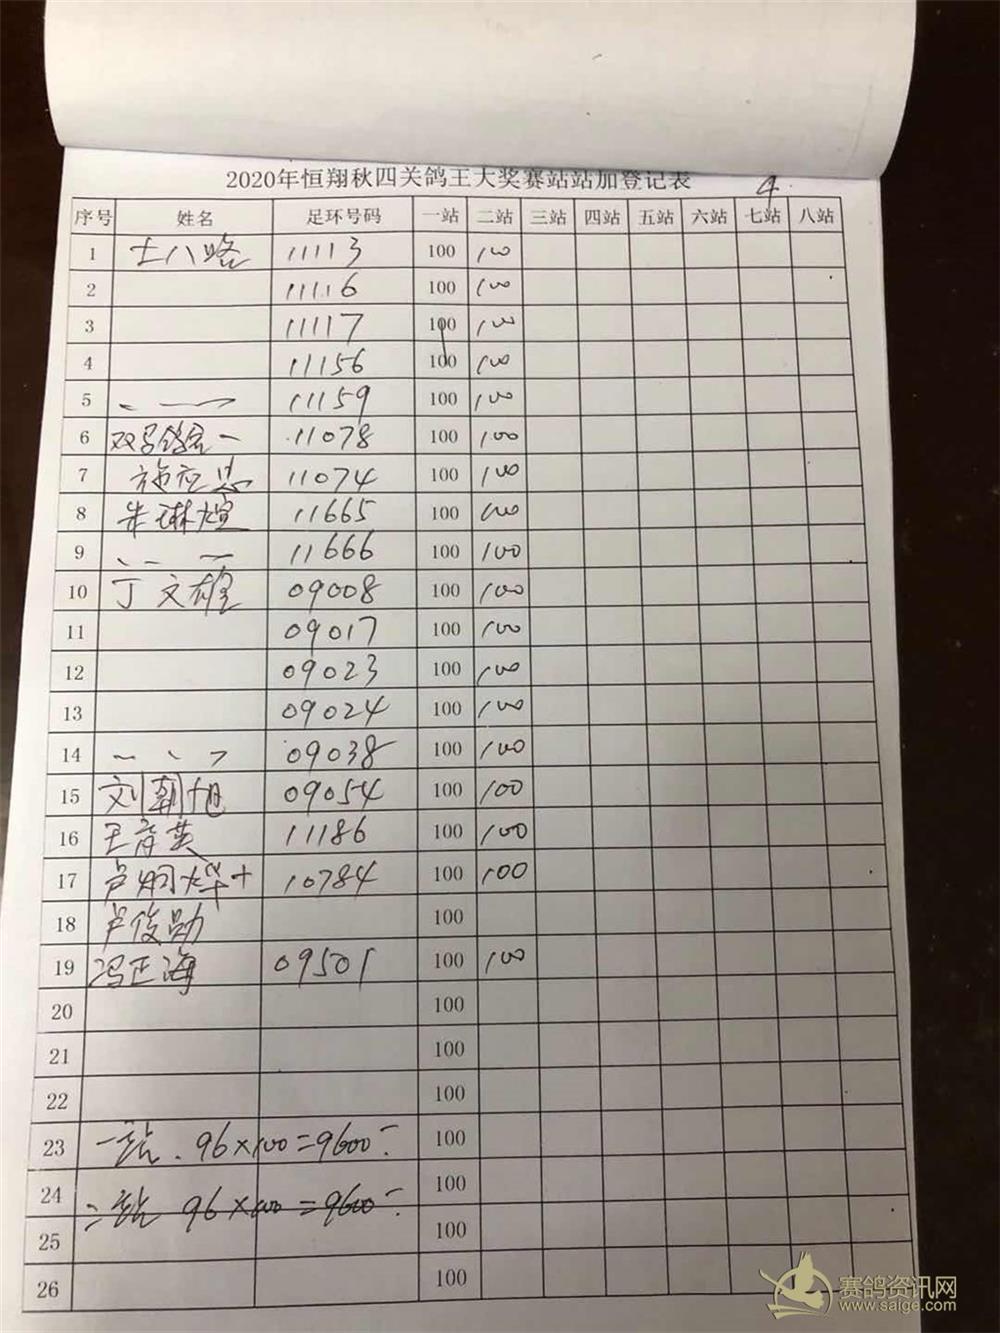 2020年恒翔秋四关鸽王大奖赛站站加登记表 4
序号 姓名 足环号码 一站 二站 三站 四站 五站 六站 七站 八站
1 士八路 11113 100 100
2 11116 100 100
3 11117 100 100
4 11156 100 100
5 11159 100 100
6 11078 100 100
7 施应忠 11074 100 100
8 朱琳煊 11665 100 100
9 11666 100 100
10 丁文雄 09008 100 100
11 09017 100 100
12 09023 100 100
13 09024 100 100
14 09038 100 100
15 刘朝旭 09054 100 100
16 王育英 11186 100 100
17 卢炯烨+ 10784 100 100
18 卢俊勋 100
19 冯正海 09501 100 100
20 100
21 100
22 100
23 一站.96×100=9600- 100
24 二站 96×100=9600- 100
25 100
26 100
赛鸽资讯网
www.saige.com